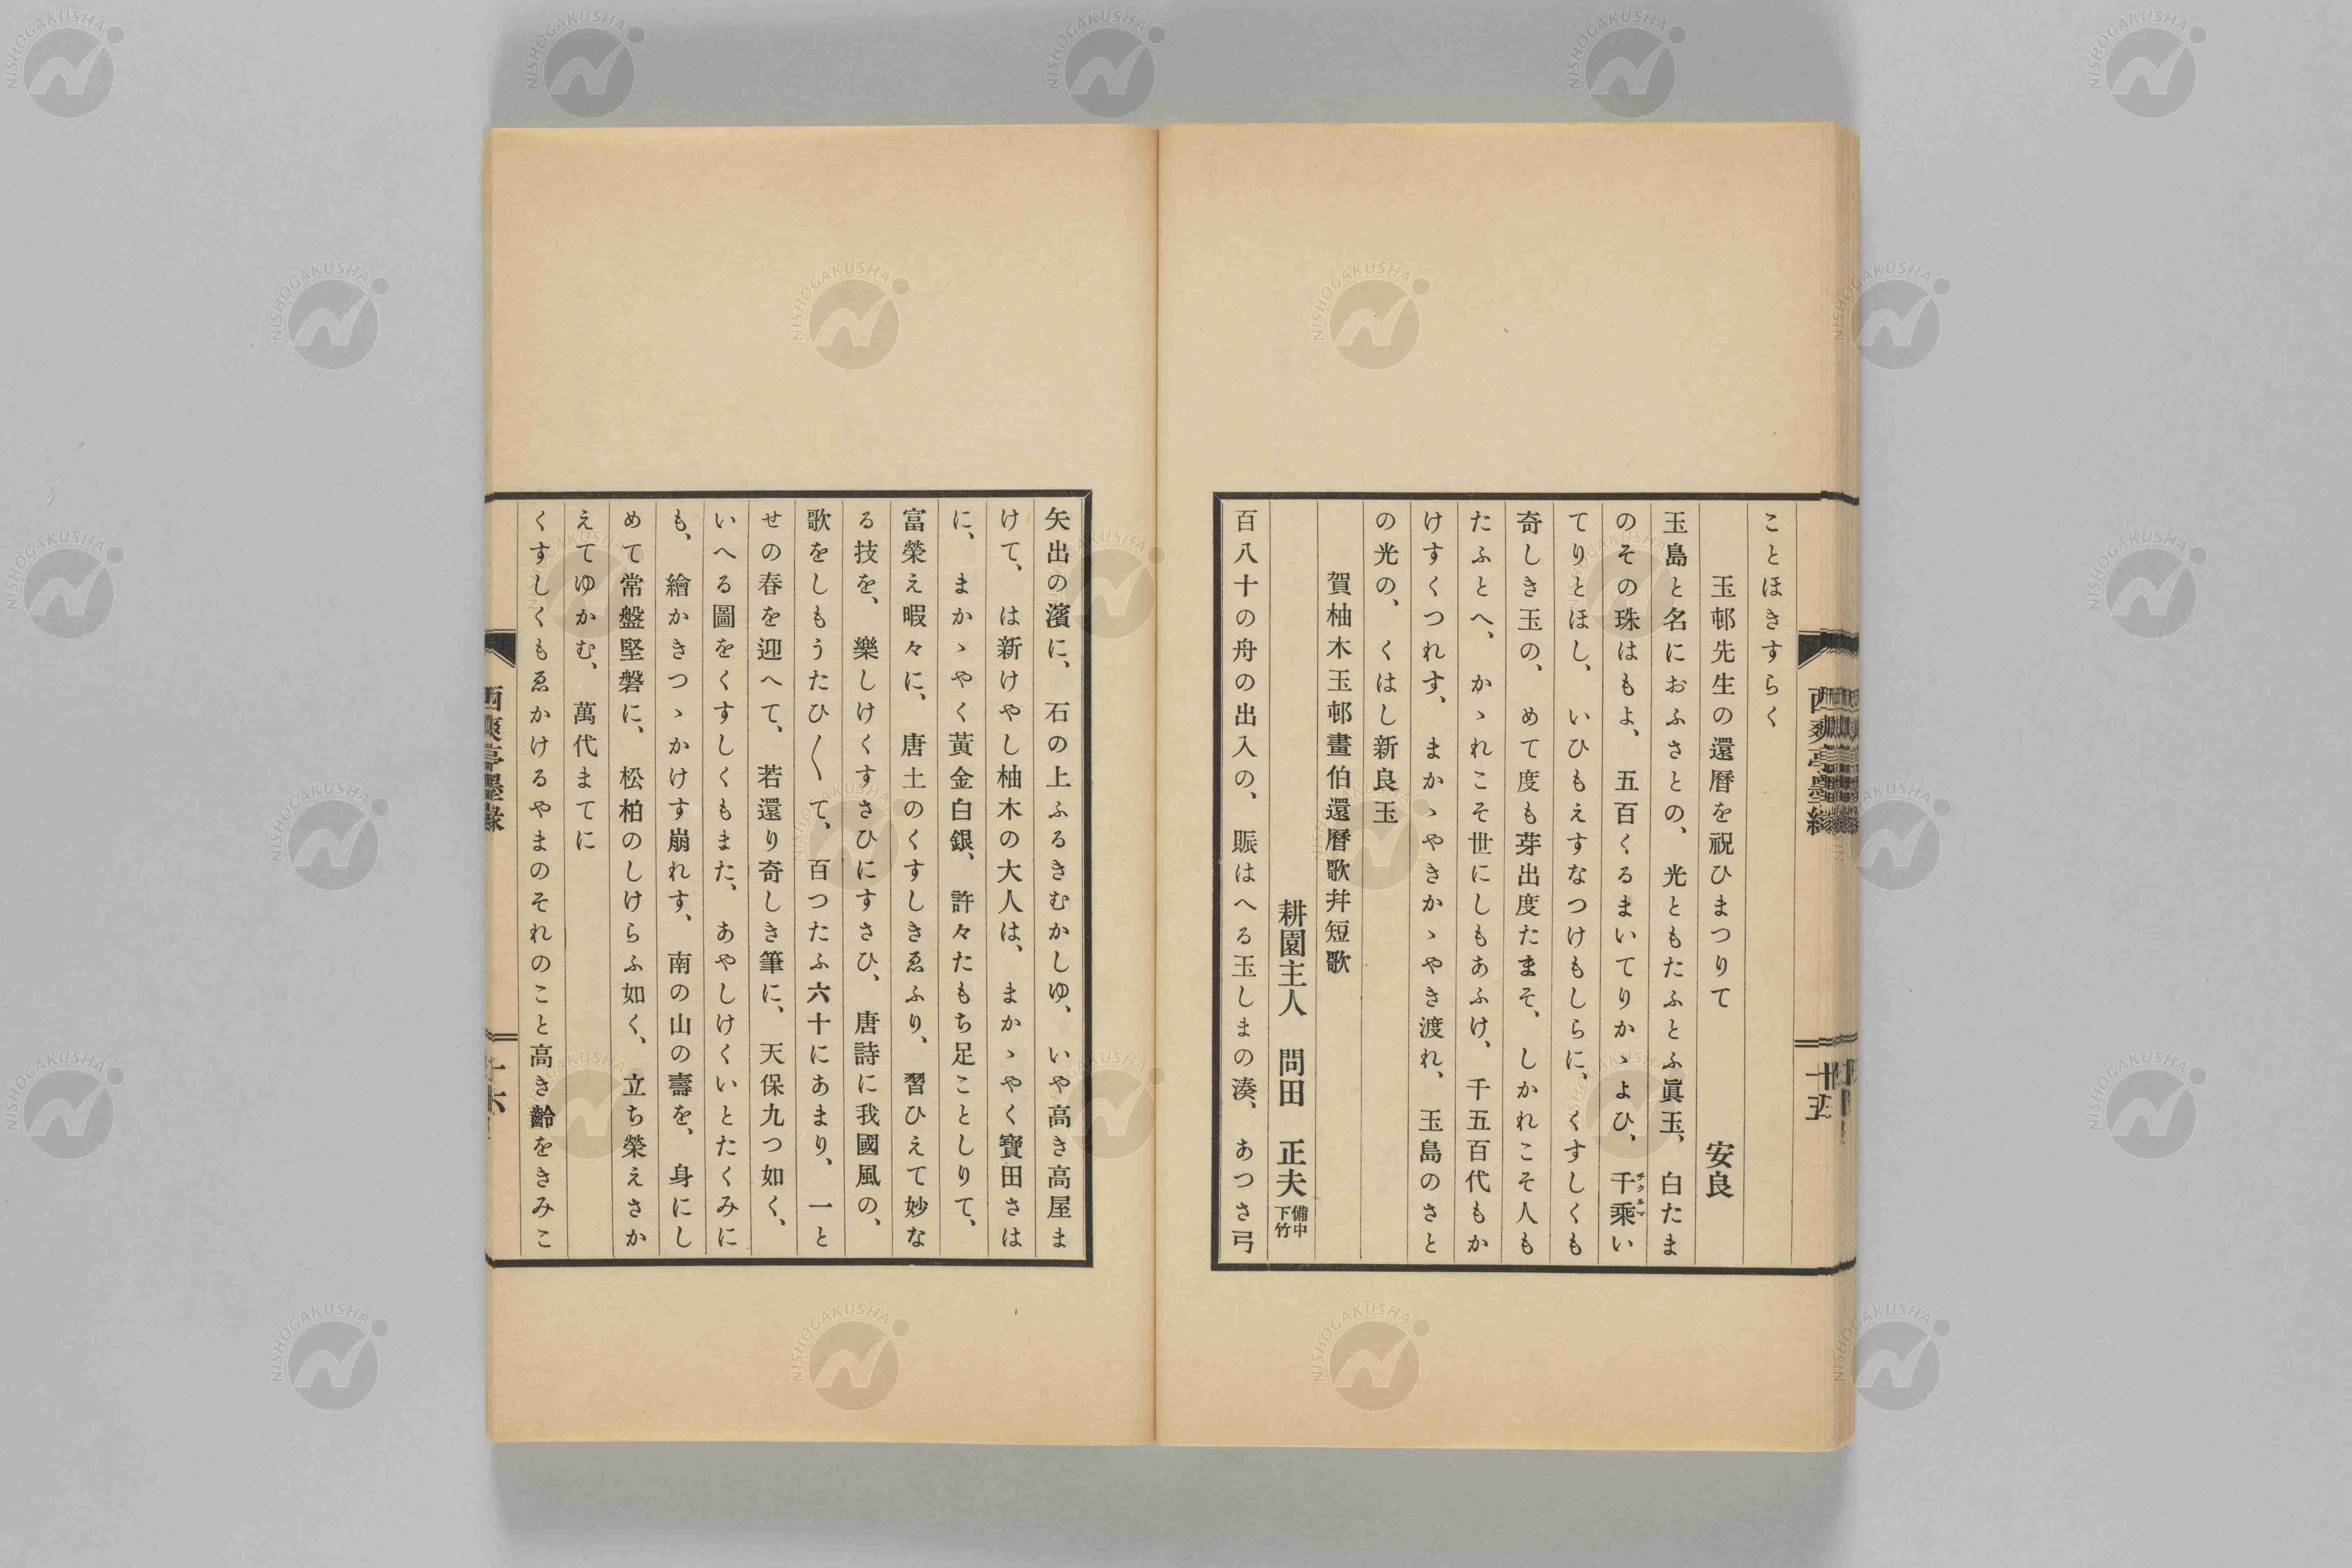 ことほきすらく
玉邨先生の還曆を祝ひまつりて 安良
玉島と名におふさとの、光ともたふとふ眞玉、白たま
のその珠はもよ、五百くるまいてりかゝよひ、千乘い
チクルマ
てりとほし、いひもえすなつけもしらに、くすしくも
奇しき玉の、めて度も芽出度たまそ、しかれこそ人も
たふとへ、かゝれこそ世にしもあふけ、千五百代もか
けすくつれす、まかゝやきかゝやき渡れ、玉島のさと
の光の、くはし新良玉
賀柚木玉邨畫伯還曆歌幷短歌
耕園主人 問田 正夫 備中下竹
百八十の舟の出入の、賑はへる玉しまの湊、あつさ弓
西爽亭墨緣
十五
矢出の濱に、石の上ふるきむかしゆ、いや高き高屋ま
けて、は新けやし柚木の大人は、まかゝやく寶田さは
に、まかゝやく黃金白銀、許々たもち足ことしりて、
富榮え暇々に、唐土のくすしきゑふり、習ひえて妙な
る技を、樂しけくすさひにすさひ、唐詩に我國風の、
歌をしもうたひ〱て、百つたふ六十にあまり、一と
せの春を迎へて、若還り奇しき筆に、天保九つ如く、
いへる圖をくすしくもまた、あやしけくいとたくみに
も、繪かきつゝかけす崩れす、南の山の壽を、身にし
めて常盤堅磐に、松柏のしけらふ如く、立ち榮えさか
えてゆかむ、萬代まてに
くすしくもゑかけるやまのそれのこと高き齡をきみこ
西爽亭墨緣
十六